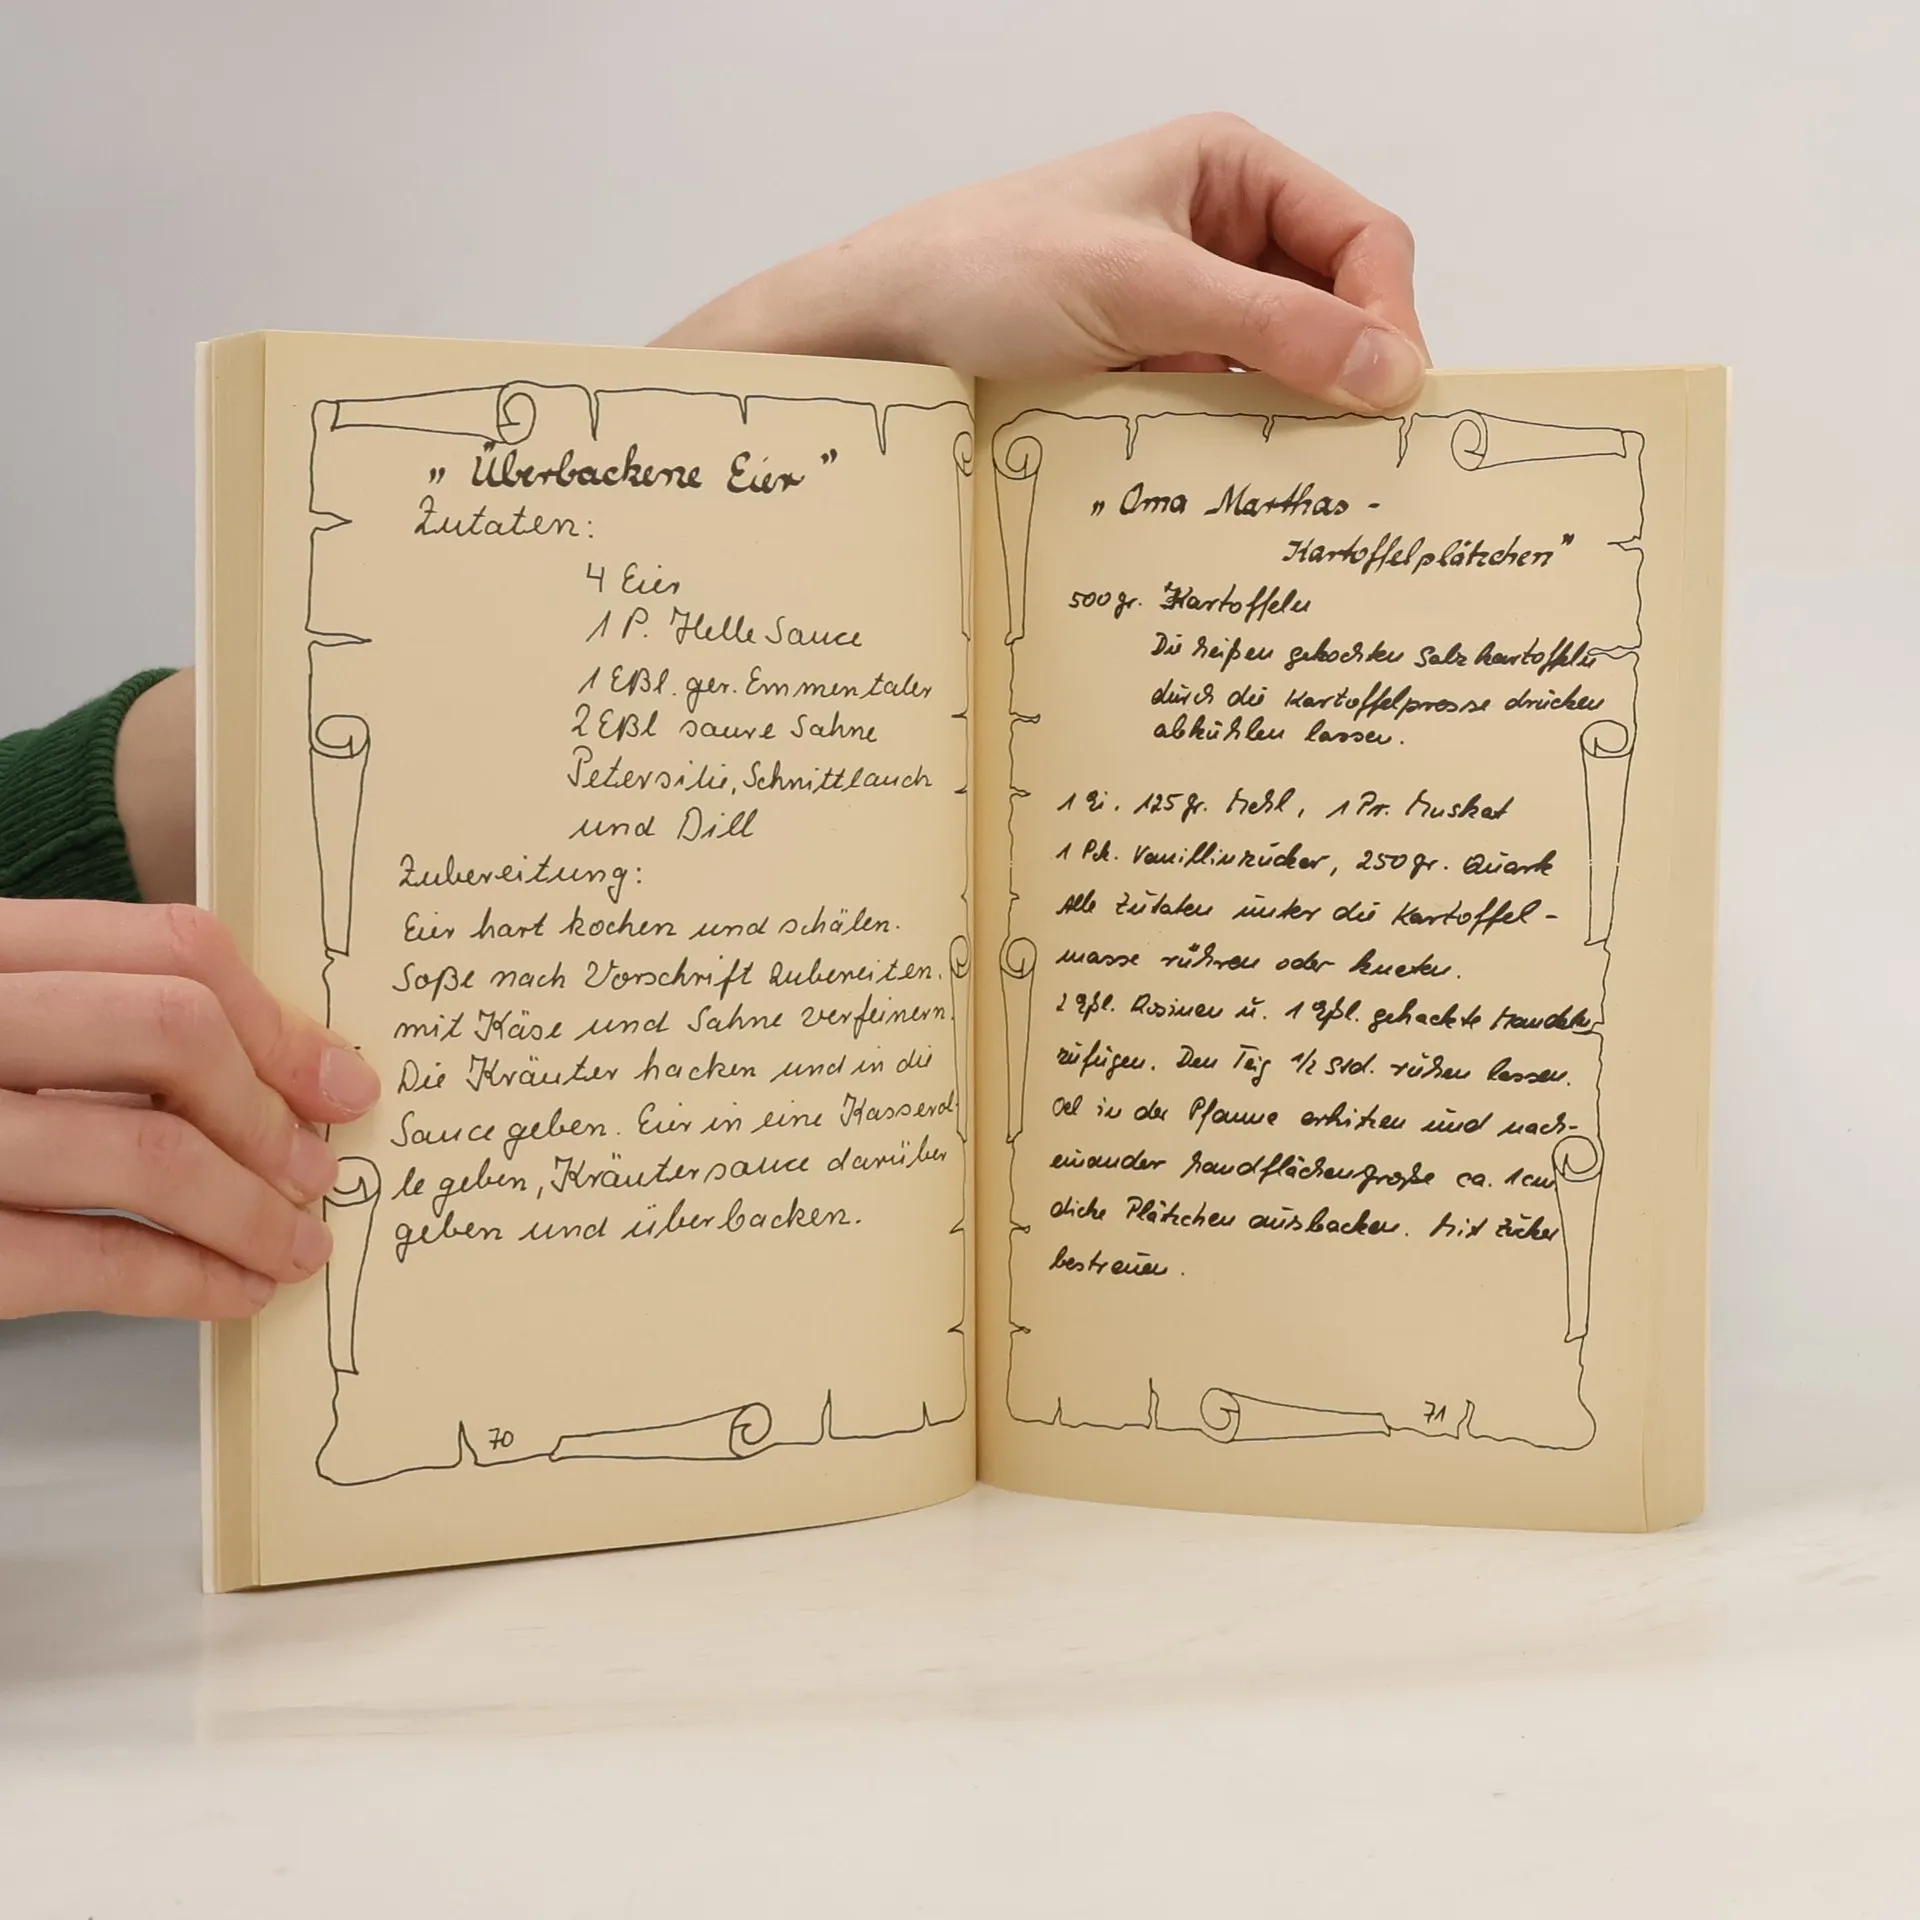 „Überbackene Eier”
Zutaten:
4 Eier
1 P. Helle Sauce
1 Eßl. ger. Emmentaler
2 Eßl saure Sahne
Petersilie, Schnittlauch
und Dill
Zubereitung:
Eier hart kochen und schälen.
Soße nach Vorschrift zubereiten.
mit Käse und Sahne verfeinern.
Die Kräuter hacken und in die
Sauce geben. Eier in eine Kasserol-
le geben, Kräutersauce darüber
geben und überbacken.
70
„Oma Marthas -
Kartoffelplätzchen”
500 gr. Kartoffeln
Die heißen gekochten Salzkartoffeln
durch die Kartoffelpresse drücken
abkühlen lassen.
1 Ei, 125 gr. Mehl, 1 Pr. Muskat
1 Pck. Vanillinzucker, 250 gr. Quark
Alle Zutaten unter die Kartoffel-
masse rühren oder kneten.
2 Eßl. Rosinen u. 1 Eßl. gehackte Mandeln
zufügen. Den Teig 1/2 Std. ruhen lassen.
Oel in der Pfanne erhitzen und nach-
einander handflächengroße ca. 1cm
dicke Plätzchen ausbacken. Mit Zucker
bestreuen.
71